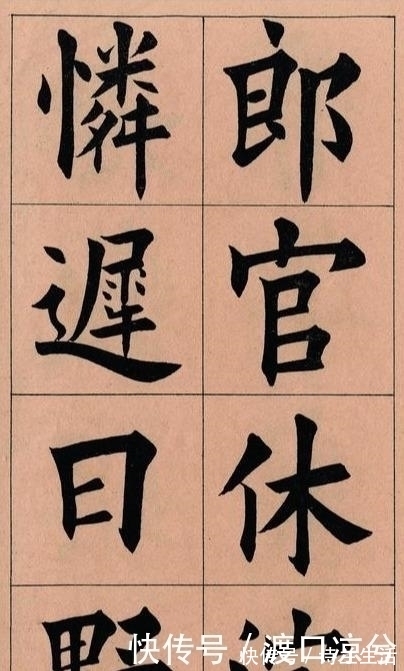 郎官休
憐遲日野
快传号 / 渡口凉兮
快传号 / 生活